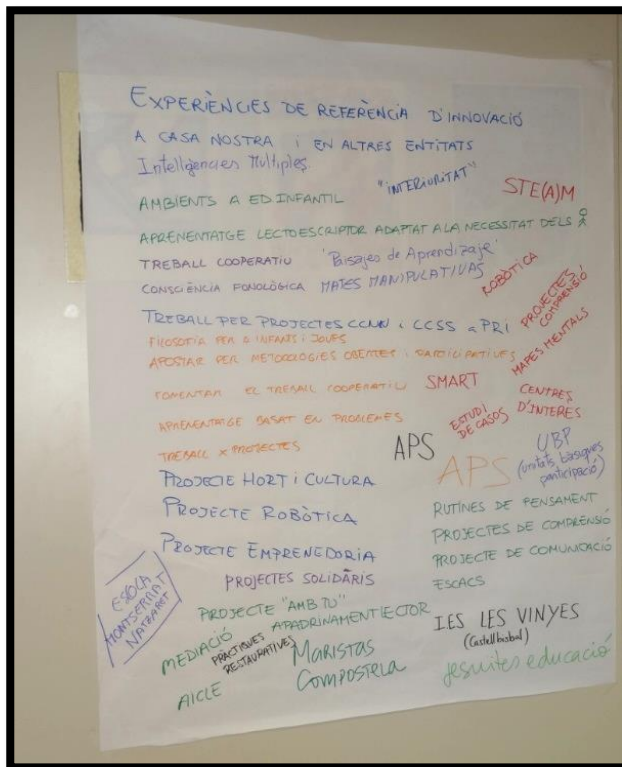 EXPERIÈNCIES DE REFERÈNCIA D'INNOVACIÓ
A CASA NOSTRA I EN ALTRES ENTITATS
Intelligències Múltiples
"INTERIORITAT"
STE(A)M
AMBIENTS A ED INFANTIL
APRENENTATGE LECTOESCRIPTOR ADAPTAT A LA NECESSITAT DELS
TREBALL COOPERATIU 'Paisajes de Aprendizaje'
CONSCIÈNCIA FONOLÒGICA MATES MANIPULATIVAS
ROBÒTICA
PROJECTES
COMPRENSIÓ
TREBALL PER PROJECTES CCNN i CCSS a PRI
FILOSOFIA PER A INFANTS i JOVES
MAPES MENTALS
APOSTAR PER METODOLOGIES OBERTES i PARTICIPATIVES
FOMENTAR EL TREBALL COOPERATIU
SMART
CENTRES
D'INTERÈS
APRENENTATGE BASAT EN PROBLEMES
ESTUDI
DE CASOS
TREBALL X PROJECTES
APS
APS
UBP
(unitats bàsiques
participació)
PROJECTE HORT i CULTURA
PROJECTE ROBÒTICA
PROJECTE EMPRENEDORIA
RUTINES DE PENSAMENT
PROJECTES DE COMPRENSIÓ
PROJECTE DE COMUNICACIÓ
ESCACS
PROJECTES SOLIDÀRIS
ESCOLA
MONTSERRAT
NATZARET
PROJECTE "AMB TU"
APADRINAMENT LECTOR
MEDIACIÓ
PRÀCTIQUES
RESTAURATIVES
AICLE
MARISTAS
Compostela
IES LES VINYES
(Castellbisbal)
jesuïtes educació